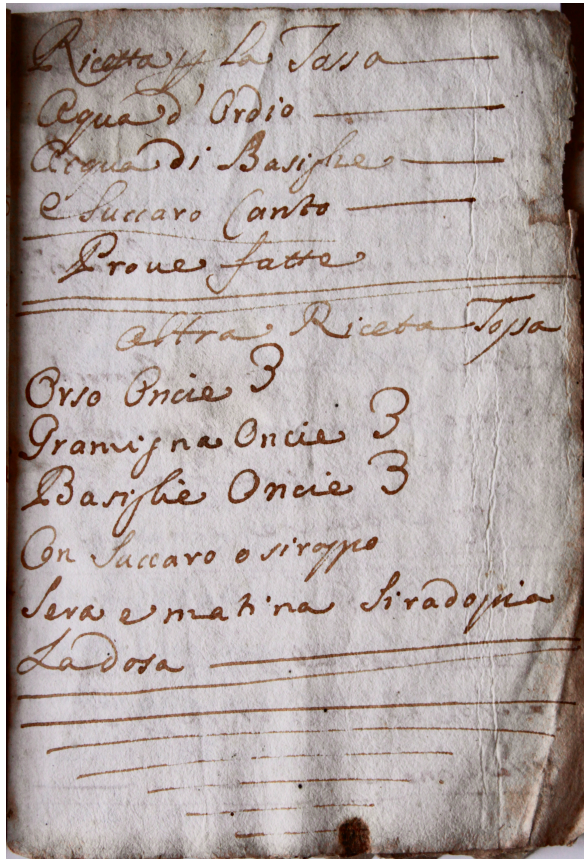 Ricetta p la Tassa
Aqua d' Ordio
Acqua di Basiglie
e Succaro Canto
Prove fatte
altra Riceta Tossa
Orso Oncie 3
Gramigna Oncie 3
Basiglie Oncie 3
Con Succaro o siroppo
Sera e matina Siradopia
La dosa